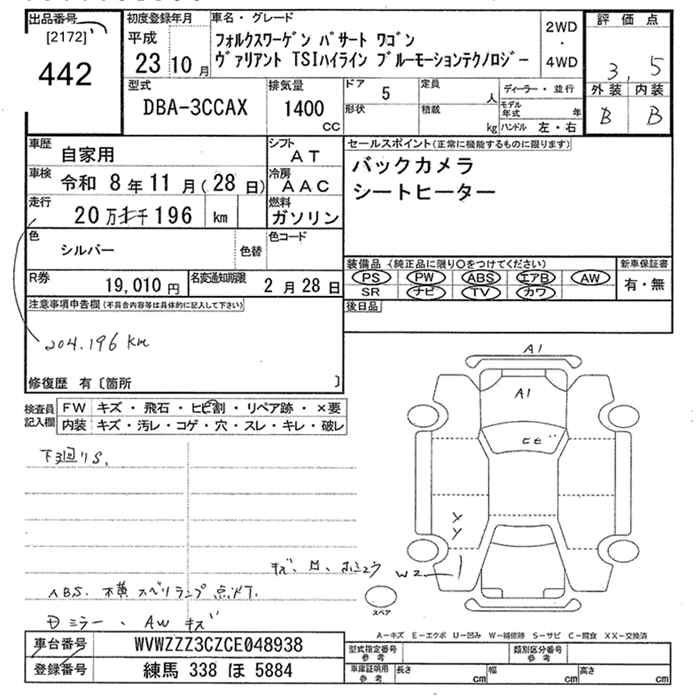 出品番号
[2172]
442
初度登録年月
平成
23 10 月
車名・グレード
フォルクスワーゲン パサート ワゴン
ヴァリアント TSIハイライン ブルーモーションテクノロジー
2WD
・
4WD
評価点
3,5
外装 内装
B B
型式
DBA-3CCAX
排気量
1400
CC
ドア 5
形状
定員 人
積載 kg
ディーラー・並行
モデル年式 年
ハンドル 左・右
車歴
自家用
シフト
AT
車検
令和 8年 11月(28日)
冷房
AAC
走行
20万 千196 km
燃料
ガソリン
色
シルバー
色替
色コード
R券
19,010円
名変通知期限
2月28日
セールスポイント(正常に機能するものに限ります)
バックカメラ
シートヒーター
装備品 (純正品に限り○をつけてください)
PS PW ABS エアB AW
SR ナビ TV カワ
新車保証書
有・無
後日品
注意事項申告欄(不具合内容等は具体的に記入して下さい)
204.196 km
修復歴 有〔箇所 〕
検査員記入欄
FW キズ・飛石・ヒビ割・リペア跡・×要
内装 キズ・汚レ・コゲ・穴・スレ・キレ・破レ
下廻りS.
ABS. 横スベリランプ点灯.
ミラー、AWキズ
A1
A1
Y
Y
W2
スペア
A－キズ E－エクボ U－凹み W－補修跡 S－サビ C－腐食 XX－交換済
車台番号
WVWZZZ3CZCE048938
登録番号
練馬 338 ほ 5884
型式指定番号
参考
類別区分番号
参考
車庫証明用
参考
長さ cm
幅 cm
高さ cm